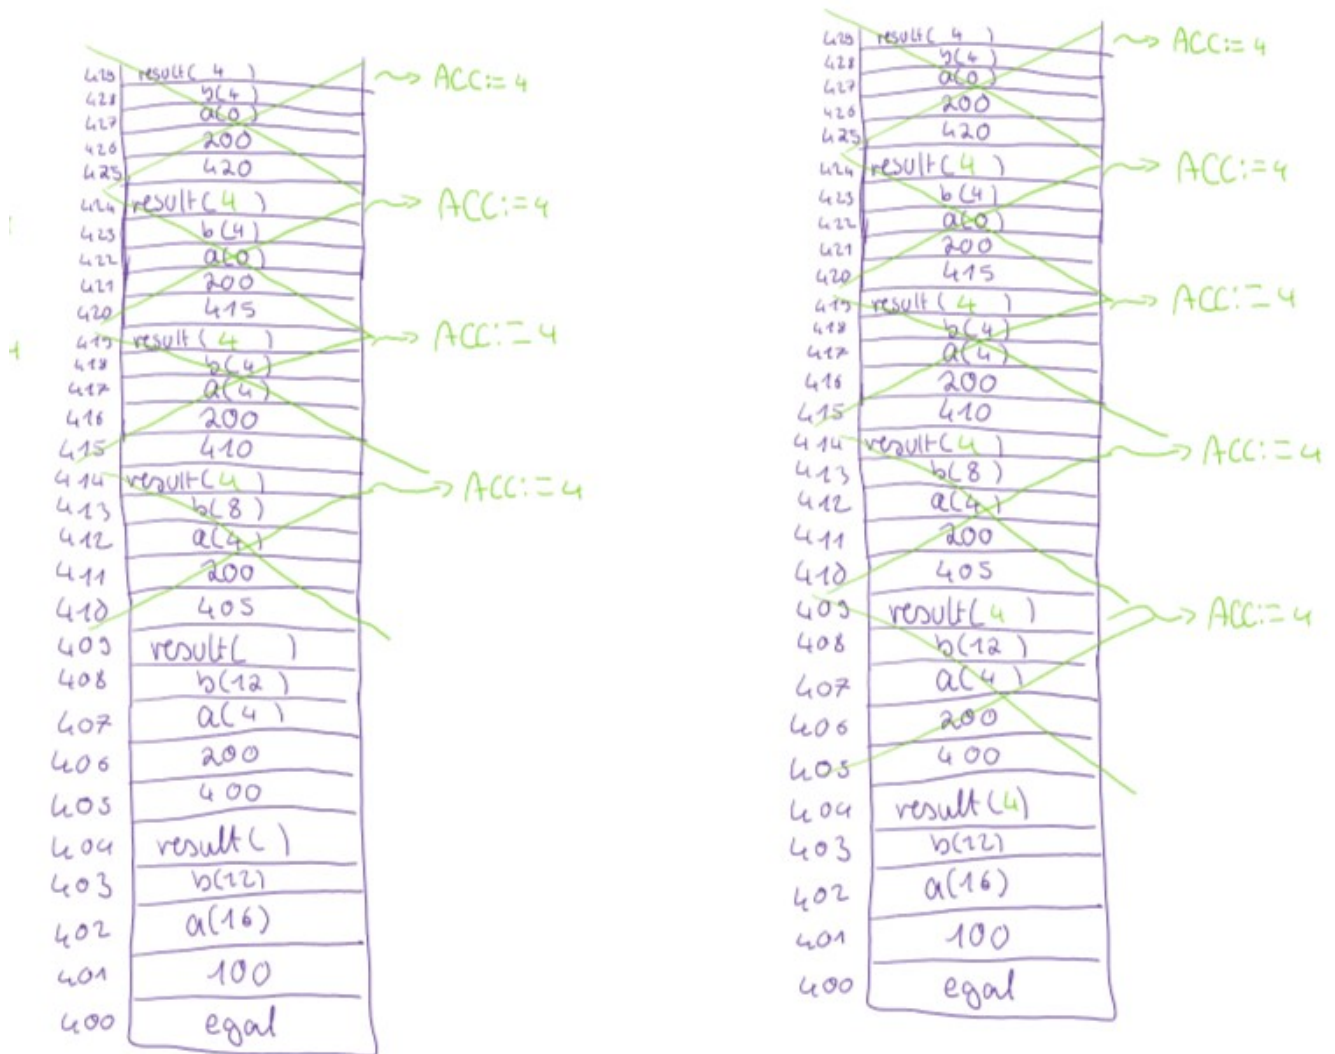 429 result( 4 )
428 b(4)
427 a(0)
426 200
425 420
424 result( 4 )
423 b(4)
422 a(0)
421 200
420 415
419 result( 4 )
418 b(4)
417 a(4)
416 200
415 410
414 result( 4 )
413 b(8)
412 a(4)
411 200
410 405
409 result( )
408 b(12)
407 a(4)
406 200
405 400
404 result( )
403 b(12)
402 a(16)
401 100
400 egal
ACC:=4
ACC:=4
ACC:=4
ACC:=4
4
429 result( 4 )
428 b(4)
427 a(0)
426 200
425 420
424 result( 4 )
423 b(4)
422 a(0)
421 200
420 415
419 result( 4 )
418 b(4)
417 a(4)
416 200
415 410
414 result( 4 )
413 b(8)
412 a(4)
411 200
410 405
409 result( 4 )
408 b(12)
407 a(4)
406 200
405 400
404 result(4)
403 b(12)
402 a(16)
401 100
400 egal
ACC:=4
ACC:=4
ACC:=4
ACC:=4
ACC:=4